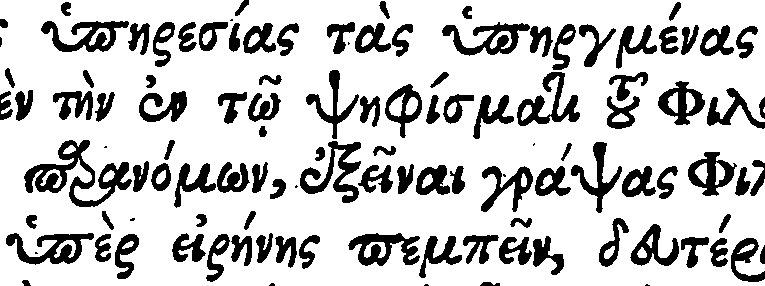 ς ὑπηρεσίας τὰς ὑπηργμένας
ὲν τὴν ἐν τῷ ψηφίσματι τοῦ Φιλ
παρανόμων, ἐξεῖναι γράψας Φι
ὑπὲρ εἰρήνης πεμπεῖν, δευτέρ